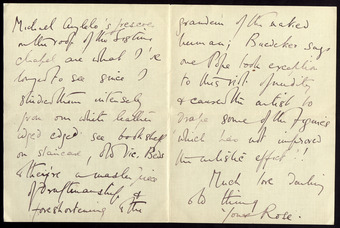 Michael Angelo's frescoes
on the roof of the Sistine
chapel are what I've
longed to see since I
studied them intensely
from our white leather
edged see book shelf
on staircase, old Vic. Beds
& they're a master piece
of Draftmanship &
foreshortening & the
grandeur of the naked
human; Baedeker says
one Pope took exception
to this riot of nudity
& caused the artist to
drape some of the figures
'which has not improved
the artistic effect'!!
Much love darling
old thing
Yours Rose.